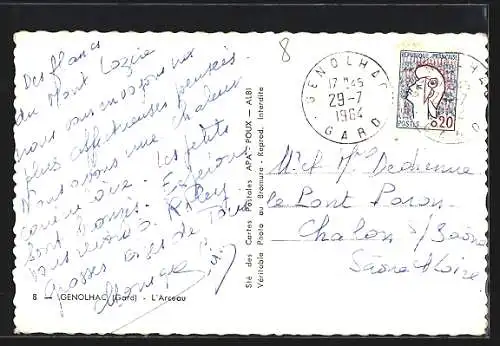 Des flancs
du Mont Lozère
nous vous envoyons nos
plus affectueuses pensées.
Nous avons une chaleur
Les petits
sont bronzés. Espérons
vous revoir à
Grosses bises de tous
Monique
8 - GENOLHAC (Gard) - L'Arceau
Sté des Cartes Postales APA-POUX - ALBI
Véritable Photo au Bromure - Reprod. Interdite
8
GENOLHAC
17 H45
29-7
1964
GARD
REPUBLIQUE FRANCAISE
POSTES
0,20
M. et Mme
Le Pont Paron
Chalon s/ Saône
Saône et Loire